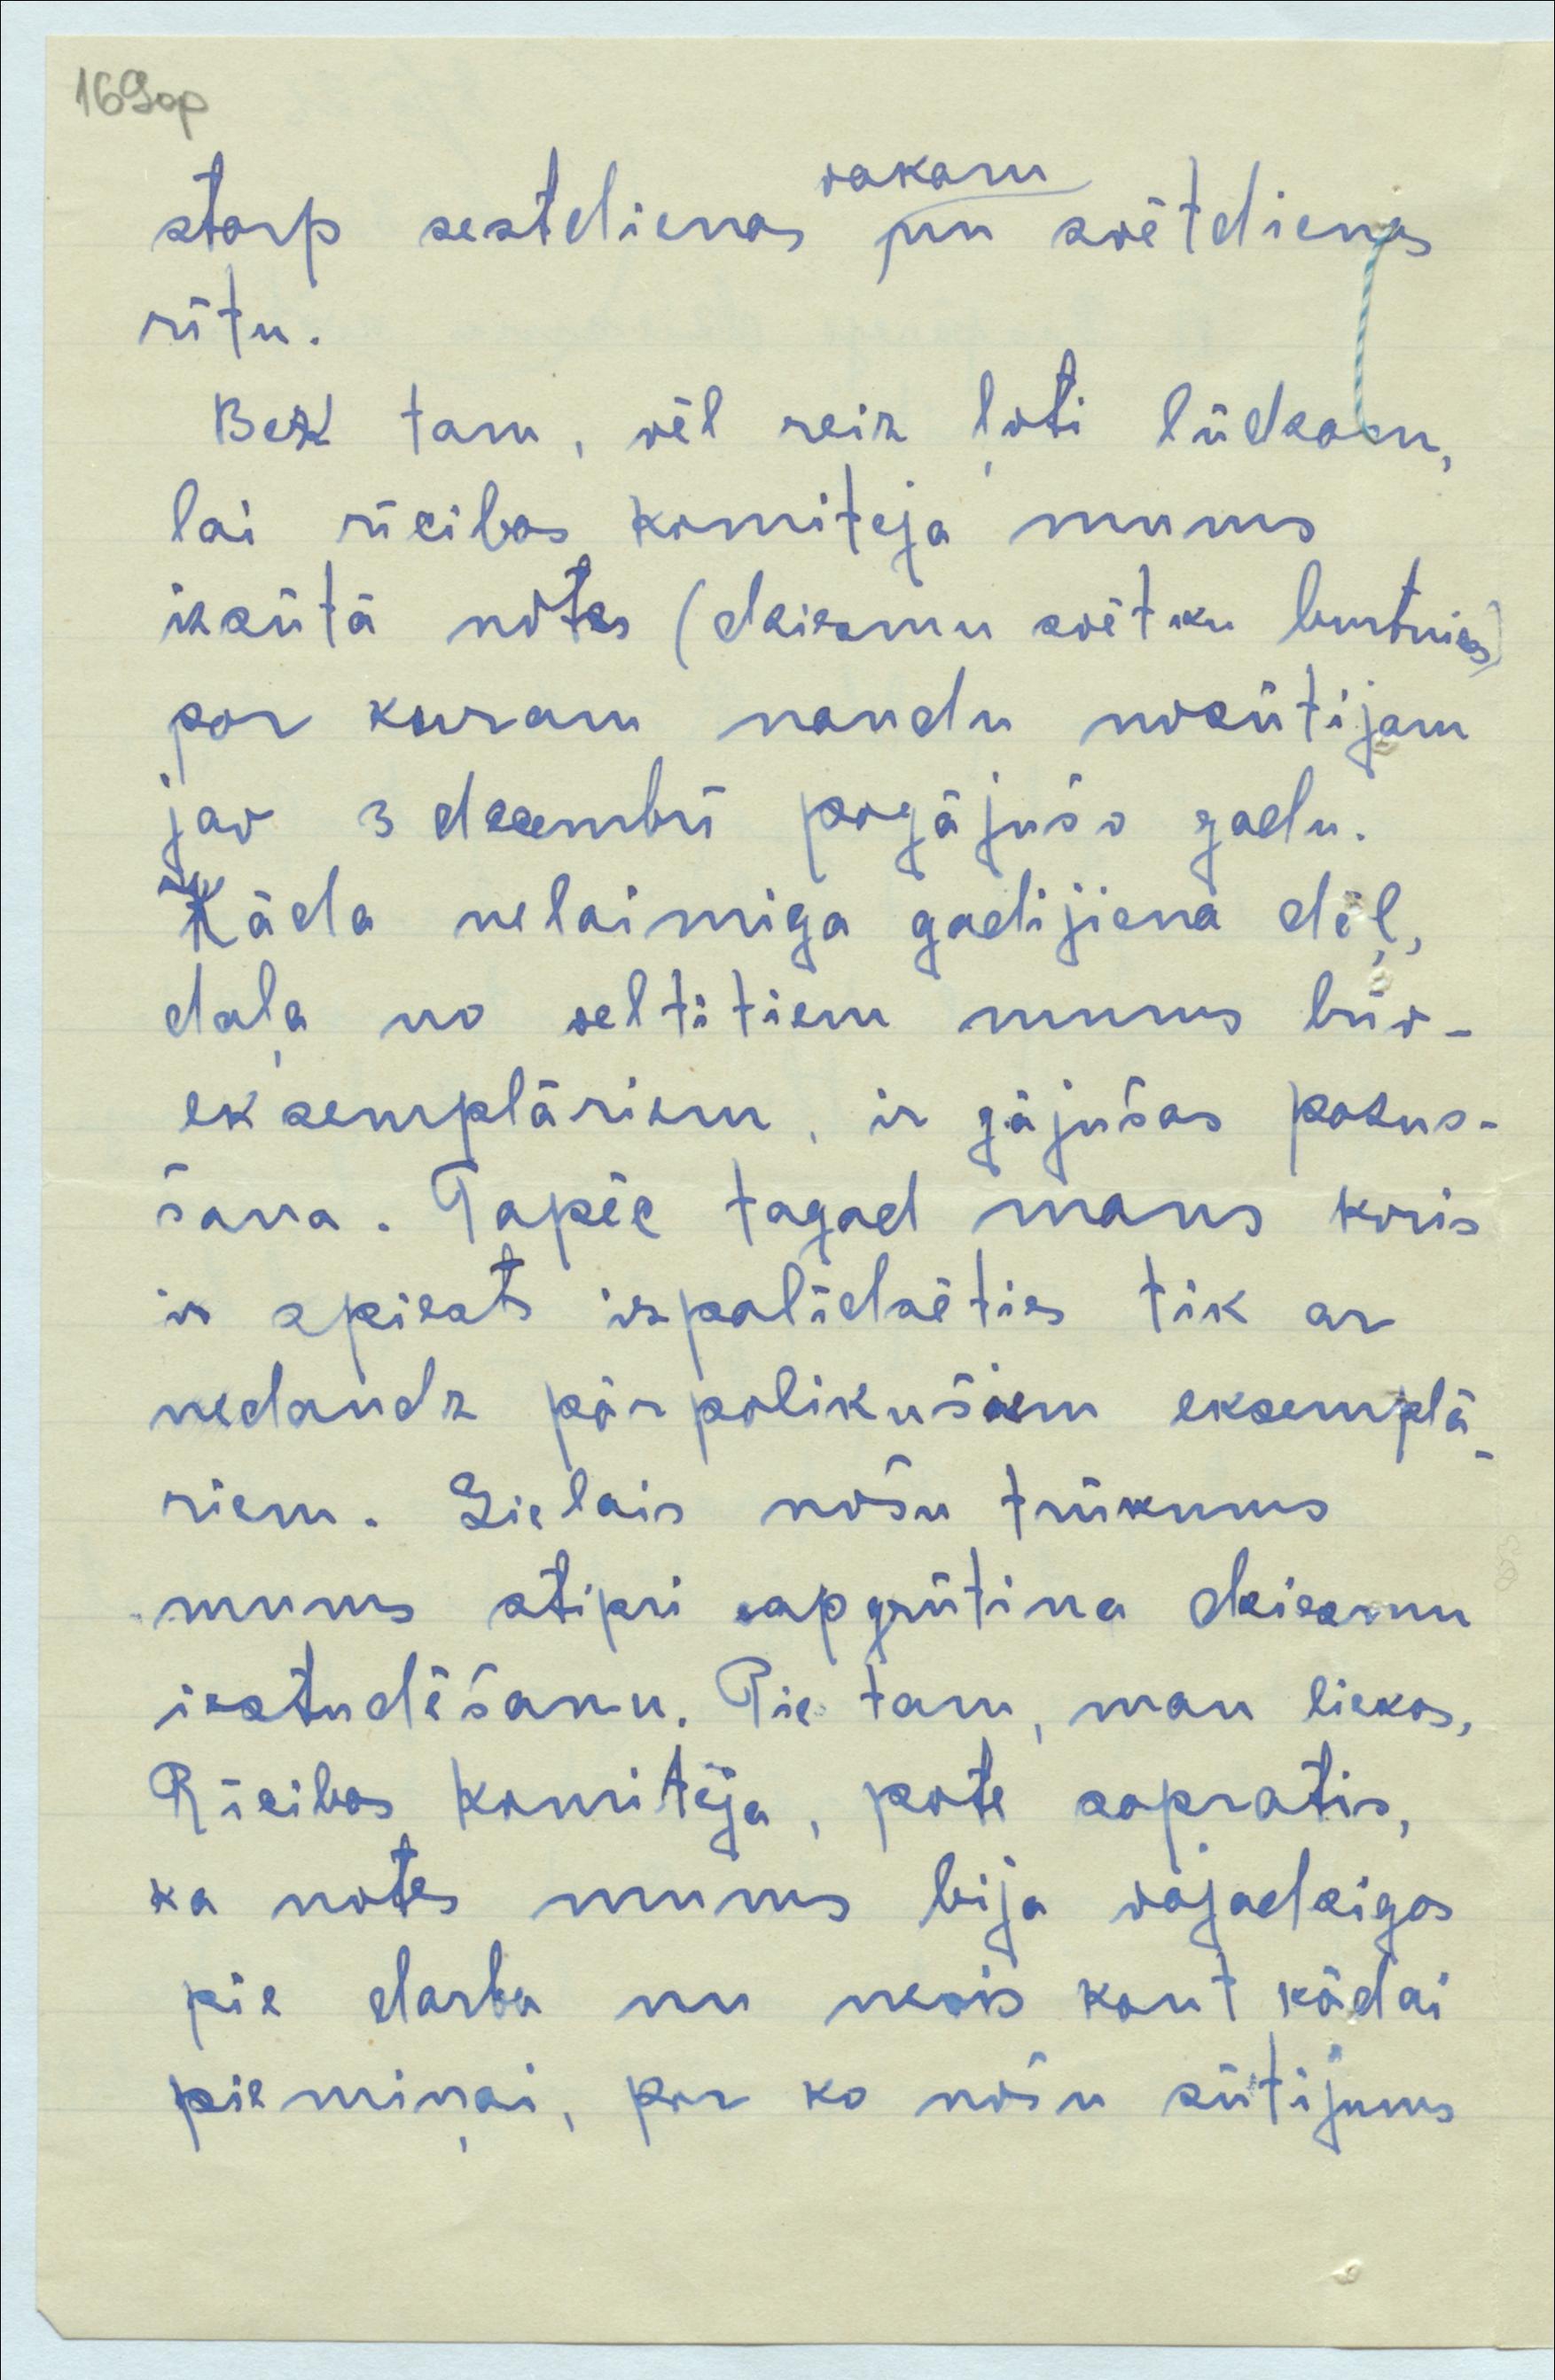 169op
vakaru
starp sestdienas un svētdienas
rītu.
Bez tam, vēl reiz ļoti lūdzam,
lai rīcības komiteja mums
izsūtā notes (dziesmu svētku burtnīcas)
par kuram naudu nosūtijam
jav 3 decembrī pagājušo gadu.
Kāda nelaimiga gadijiena dēļ,
daļa no veltītiem mums brīv-
eksemplāriem, ir gājušas pazus-
šana. Tapēc tagad mans koris
ir spiests izpalīdzēties tik ar
nedaudz pārpalikušiem eksemplā-
riem. Lielais nošu trūkums
mums stipri apgrūtina dziesmu
iestudēšanu. Pie tam, man liekas,
Rīcibas komitēja, pate sapratis,
ka notes mums bija vajadzigas
pie darba un nevis kaut kādai
piemiņai, par ko nošu sūtījums